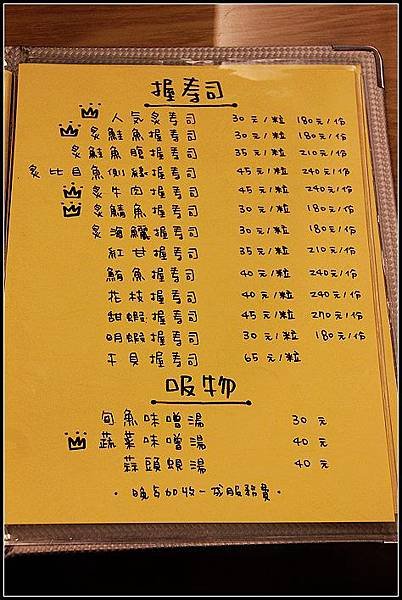 握壽司
人気炙壽司 30元/粒 180元/份
炙鮭魚握壽司 30元/粒 180元/份
炙鮭魚腹握壽司 35元/粒 210元/份
炙比目魚側緣握壽司 45元/粒 240元/份
炙牛肉握壽司 45元/粒 240元/份
炙鯖魚握壽司 30元/粒 180元/份
炙海鱺握壽司 30元/粒 180元/份
紅甘握壽司 35元/粒 210元/份
鮪魚握壽司 40元/粒 240元/份
花枝握壽司 40元/粒 240元/份
甜蝦握壽司 45元/粒 270元/份
明蝦握壽司 30元/粒 180元/份
干貝握壽司 65元/粒
吸物
旬魚味噌湯 30元
蔬菜味噌湯 40元
蒜頭蜆湯 40元
·晚占加收一成服務費·